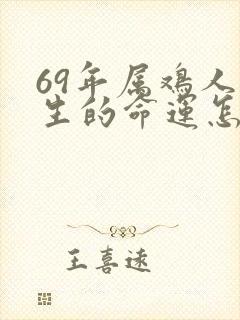 69年属鸡人
生的命运怎
王喜远